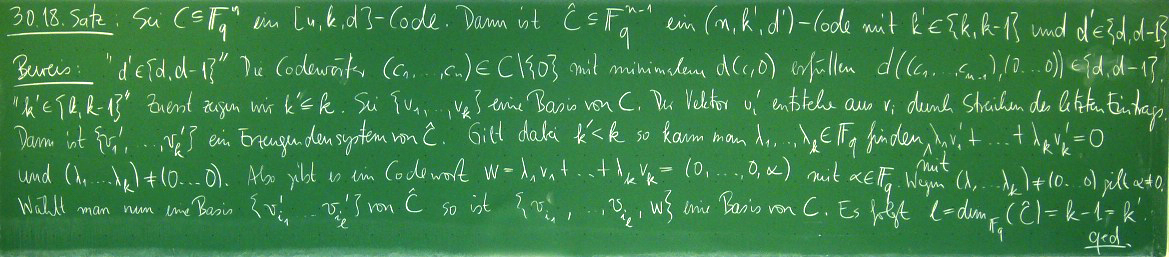 30.18. Satz: Sei C ⊆ 𝔽_q^n ein [n,k,d]-Code. Dann ist Ĉ ⊆ 𝔽_q^{n-1} ein (n,k',d')-Code mit k' ∈ {k,k-1} und d' ∈ {d,d-1}
Beweis: "d' ∈ {d,d-1}" Die Codewörter (c₁,...,cₙ) ∈ C\{0} mit minimalem d(c,0) erfüllen d((c₁,...,cₙ₋₁),(0...0)) ∈ {d,d-1}.
"k' ∈ {k,k-1}" Zuerst zeigen wir k' ≤ k. Sei {v₁,...,v_k} eine Basis von C. Der Vektor v_i' entstehe aus v_i durch Streichen des letzten Eintrags.
Dann ist {v₁',...,v_k'} ein Erzeugendensystem von Ĉ. Gilt dabei k' < k so kann man λ₁,...,λ_k ∈ 𝔽_q finden λ₁v₁' + ... + λ_k v_k' = 0
und (λ₁...λ_k) ≠ (0...0). Also gibt es ein Codewort w = λ₁v₁ + ... + λ_k v_k = (0,...,0,α) mit α ∈ 𝔽_q. Wegen (λ₁...λ_k) ≠ (0...0) gilt α ≠ 0
Wählt man nun eine Basis {v'_{i₁} ... v'_{i_ℓ}} von Ĉ so ist {v_{i₁},...,v_{i_ℓ},w} eine Basis von C. Es folgt ℓ = dim_{𝔽_q}(Ĉ) = k-1 = k'.
qed.